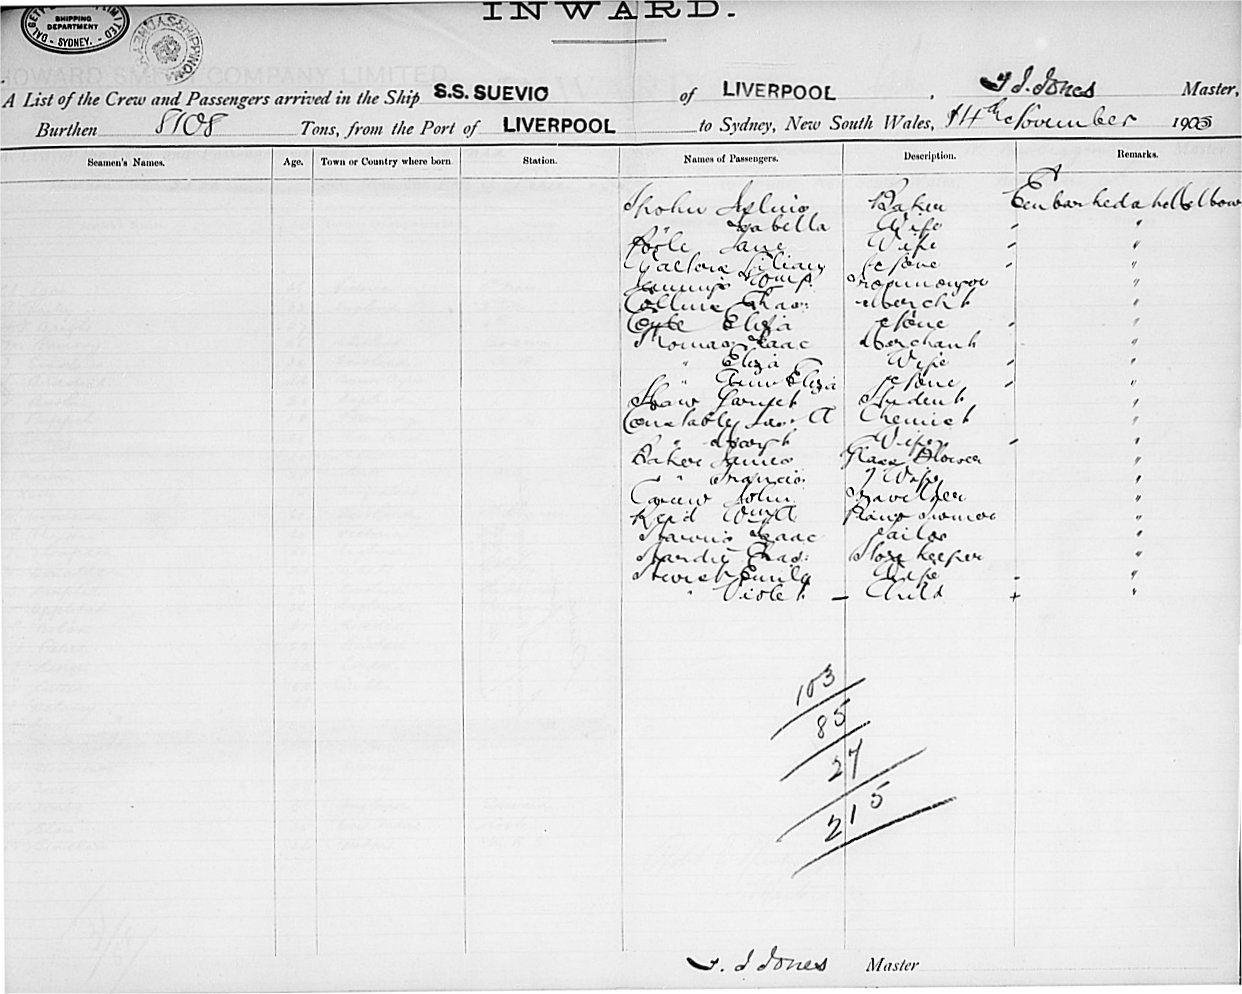 INWARD.
SHIPPING
DEPARTMENT
SYDNEY.
A List of the Crew and Passengers arrived in the Ship S.S. SUEVIC of LIVERPOOL, Jones Master,
Burthen 8108 Tons, from the Port of LIVERPOOL to Sydney, New South Wales, 14th November 190
Seamen's Names. Age. Town or Country where born Station. Names of Passengers. Description. Remarks.
Spohn Baker Embarked at Melbourne
" Isabella Wife - "
Jane Wife - "
Lilian None - "
Jennings Thomas Ironmonger "
Collins Chas: Mercht "
Eliza None - "
Thomas Isaac Merchant "
" Eliza Wife - "
" Eliza None - "
Shaw Student "
Constable Jas. A Chemist "
" Wife - "
Baker James Glass Blower "
" Francis " Wife "
Carew John Traveller "
Reid Wm A Piano Tuner "
Isaac Tailor "
Hardie Chas: Store Keeper "
Emily Wife - "
" Violet - Child + "
103
85
27
215
Jones Master